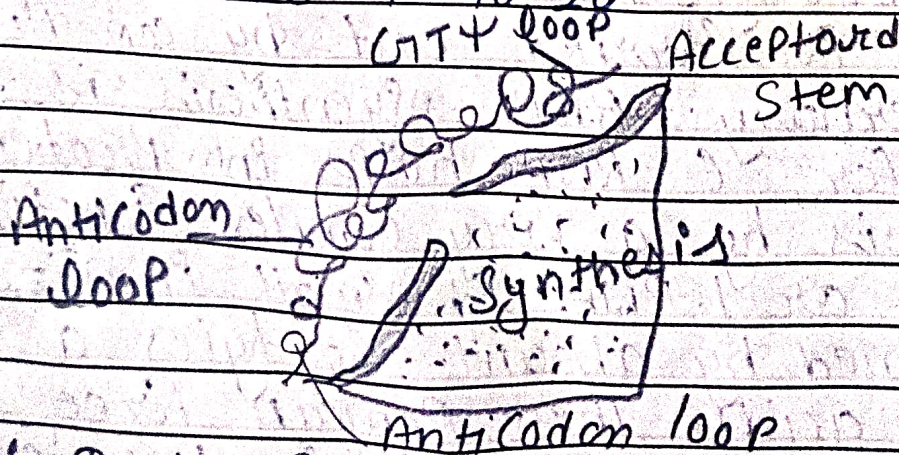 GTΨ loop
Acceptourd
Stem
Anticodon
loop.
Synthesis
Anticodon loop